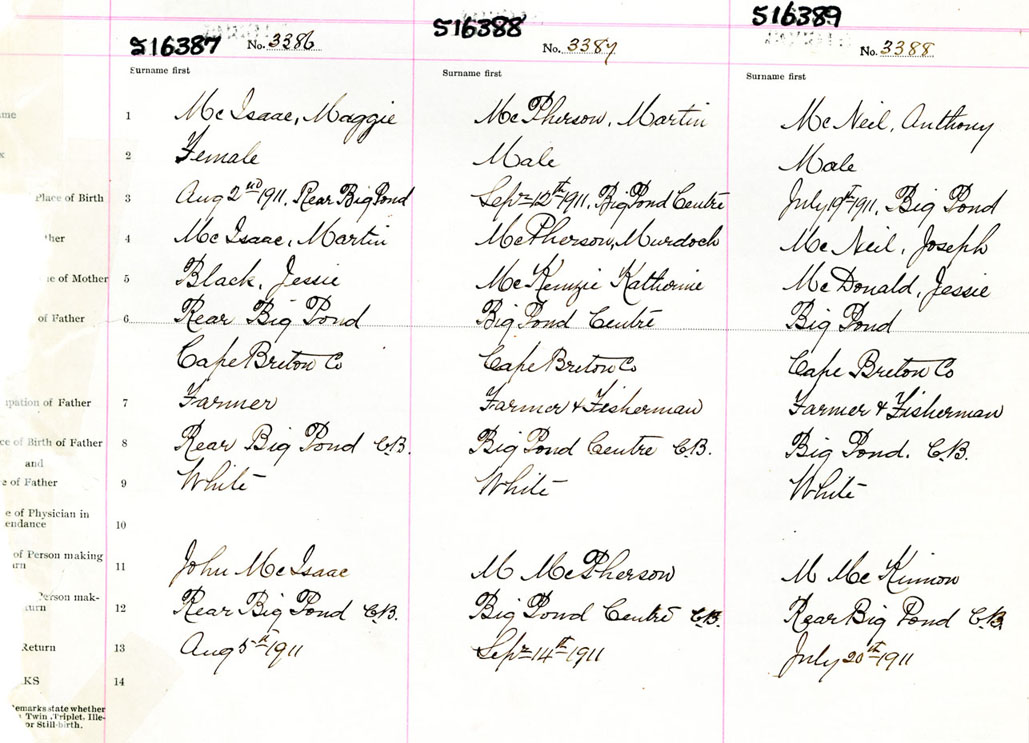 516387 No. 3386 516388 No. 3387 516389 No. 3388
Surname first Surname first Surname first
me 1 Mc Isaac, Maggie McPherson, Martin Mc Neil, Anthony
x 2 Female Male Male
Place of Birth 3 Aug 2nd 1911, Rear Big Pond Sept 12th 1911, Big Pond Centre July 19th 1911, Big Pond
ther 4 Mc Isaac, Martin McPherson, Murdoch Mc Neil, Joseph
ne of Mother 5 Black, Jessie McKenzie Katherine McDonald, Jessie
of Father 6 Rear Big Pond Big Pond Centre Big Pond
Cape Breton Co Cape Breton Co Cape Breton Co
upation of Father 7 Farmer Farmer & Fisherman Farmer & Fisherman
ce of Birth of Father 8 Rear Big Pond C.B. Big Pond Centre C.B. Big Pond. C.B.
and
e of Father 9 White White White
e of Physician in
endance 10
of Person making
urn 11 John Mc Isaac M McPherson M Mc Kinnon
Person mak-
turn 12 Rear Big Pond C.B. Big Pond Centre C.B. Rear Big Pond C.B.
Return 13 Aug 5th 1911 Sept 14th 1911 July 20th 1911
KS 14
emarks state whether
Twin, Triplet, Ille-
or Still-birth.